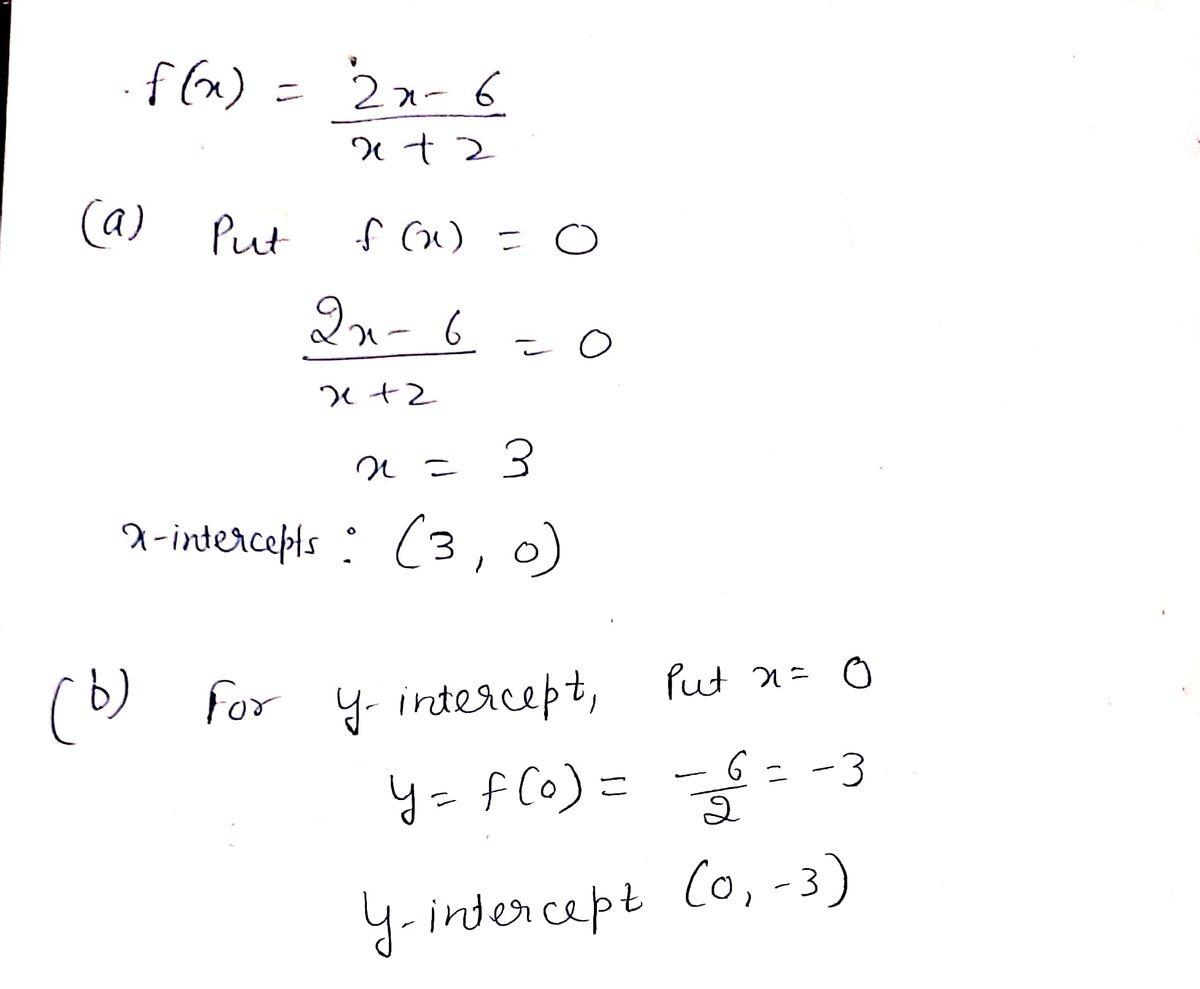 f(x) = 2x - 6
x + 2
(a) Put f(x) = 0
2x - 6 = 0
x + 2
x = 3
x-intercepts : (3, 0)
(b) For y-intercept, Put x = 0
y = f(0) = -6/2 = -3
y-intercept (0, -3)